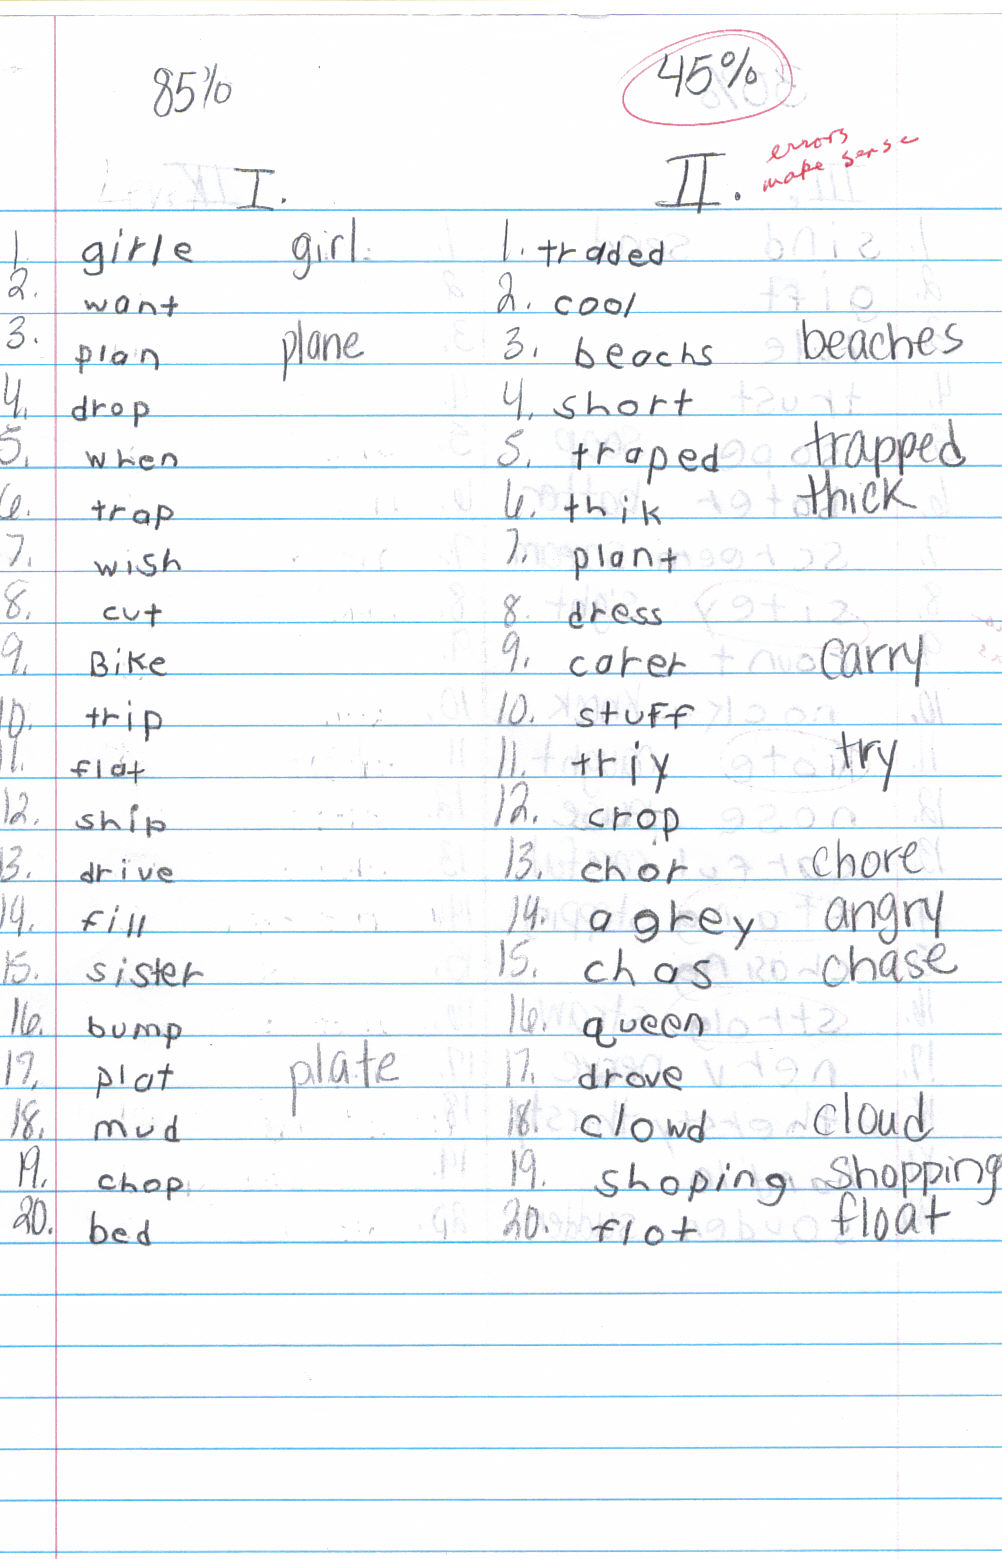 85%
45%
errors
make sense
I.
II.
1. girle girl
2. want
3. plan plane
4. drop
5. when
6. trap
7. wish
8. cut
9. Bike
10. trip
11. flat
12. ship
13. drive
14. fill
15. sister
16. bump
17. plat plate
18. mud
19. chop
20. bed
1. traded
2. cool
3. beachs beaches
4. short
5. traped trapped
6. thik thick
7. plant
8. dress
9. carer carry
10. stuff
11. triy try
12. crop
13. chor chore
14. agrey angry
15. chas chase
16. queen
17. drove
18. clowd cloud
19. shoping shopping
20. flot float